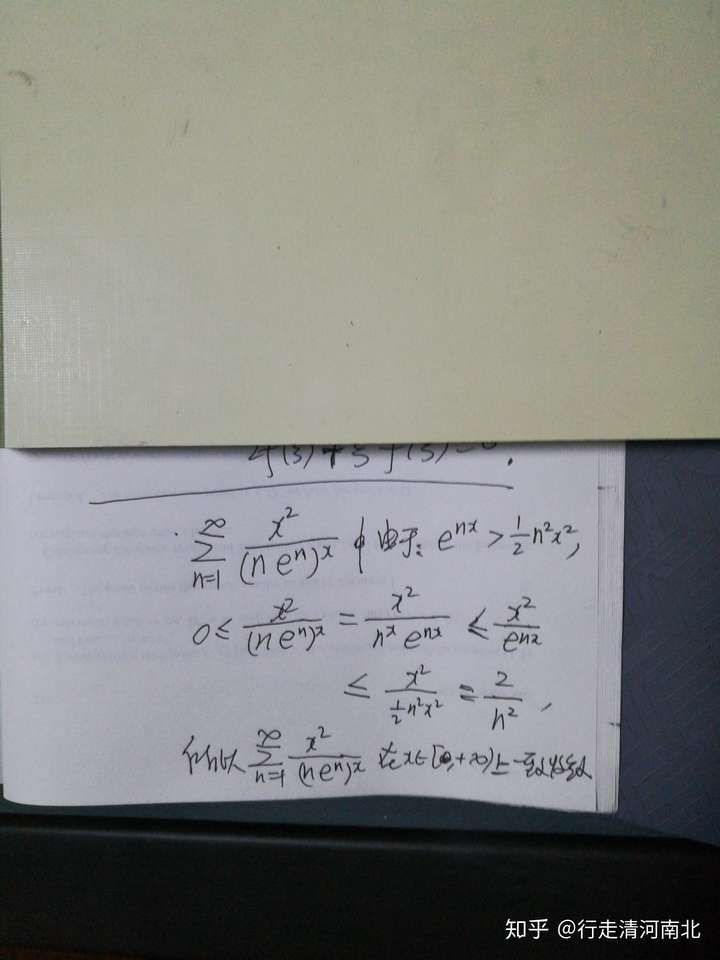 4f(3)+3f(3)=0.
∑_{n=1}^{∞} x²/(n eⁿ)^x 由于: e^{nx} > ½n²x²,
0 ≤ x²/(n eⁿ)^x = x²/(n^x e^{nx}) ≤ x²/e^{nx}
≤ x²/(½n²x²) = 2/n²,
所以 ∑_{n=1}^{∞} x²/(n eⁿ)^x 在 x∈[0,+∞)上一致收敛
知乎 @行走清河南北